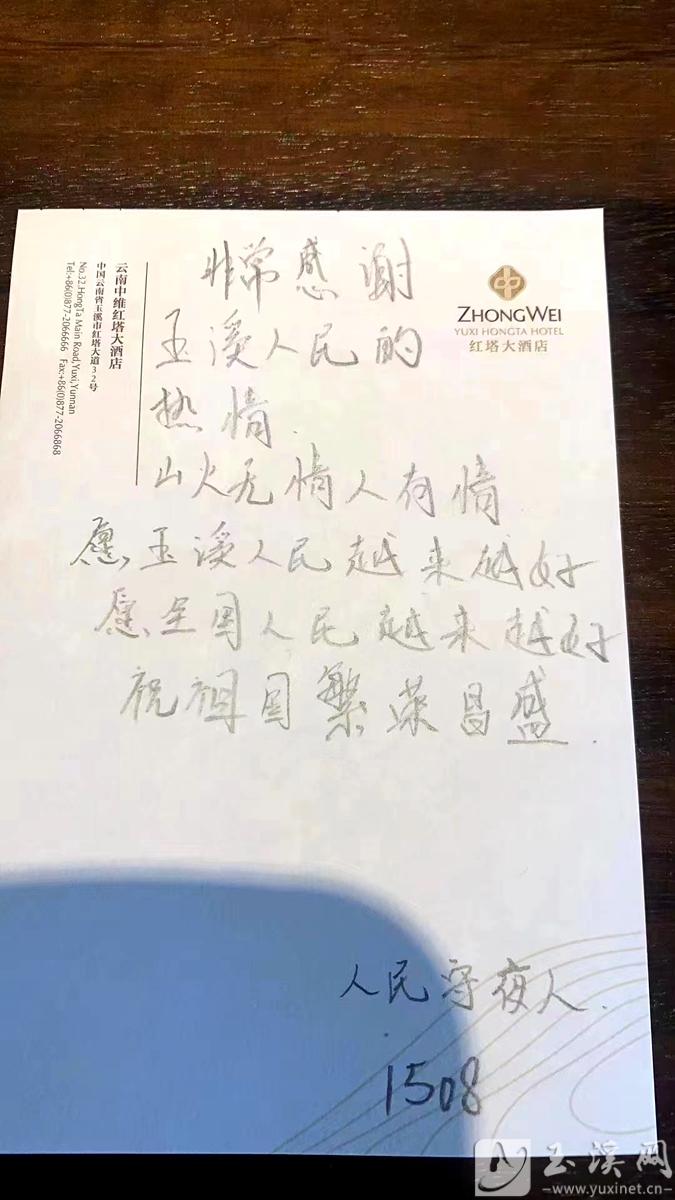 非常感谢
玉溪人民的
热情.
山火无情人有情
愿玉溪人民越来越好
愿全国人民越来越好
祝祖国繁荣昌盛.
人民守夜人.
1508
ZHONGWEI
YUXI HONGTA HOTEL
红塔大酒店
云南中维红塔大酒店
中国云南省玉溪市红塔大道32号
No.32.HongTa Main Road,Yuxi,Yunnan
Tel:+86(0)877-2066666 Fax:+86(0)877-2066868
玉溪网
www.yuxinet.cn